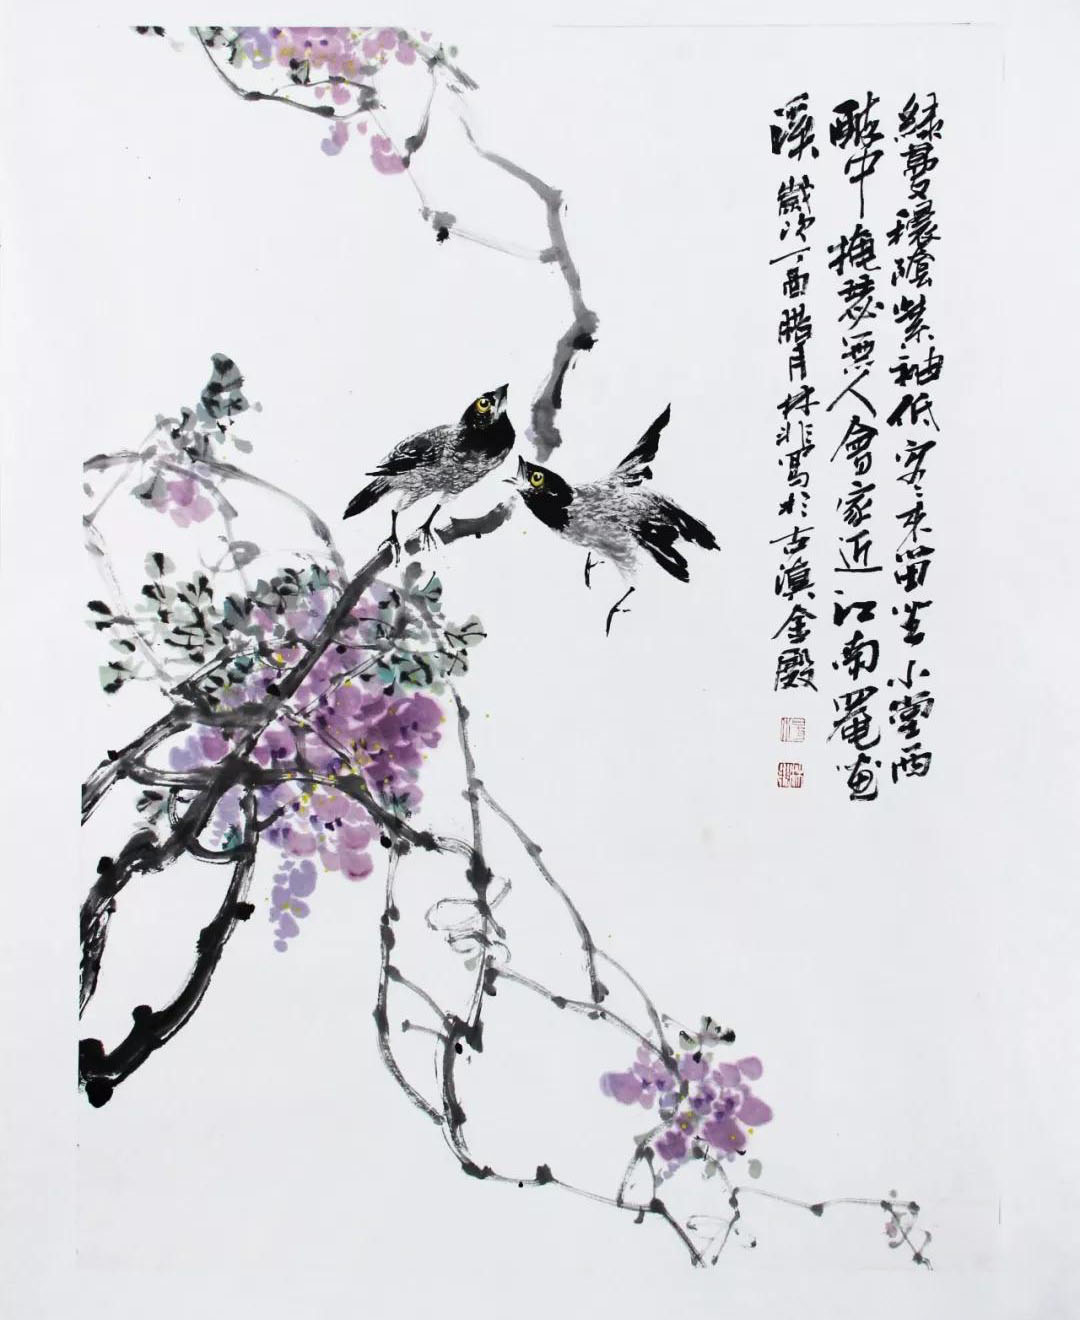 綠蔓穠陰紫袖低客来留坐小堂西
醉中掩瑟無人會家近江南罨画
溪 歲次丁酉腊月林非寫於古滇金殿